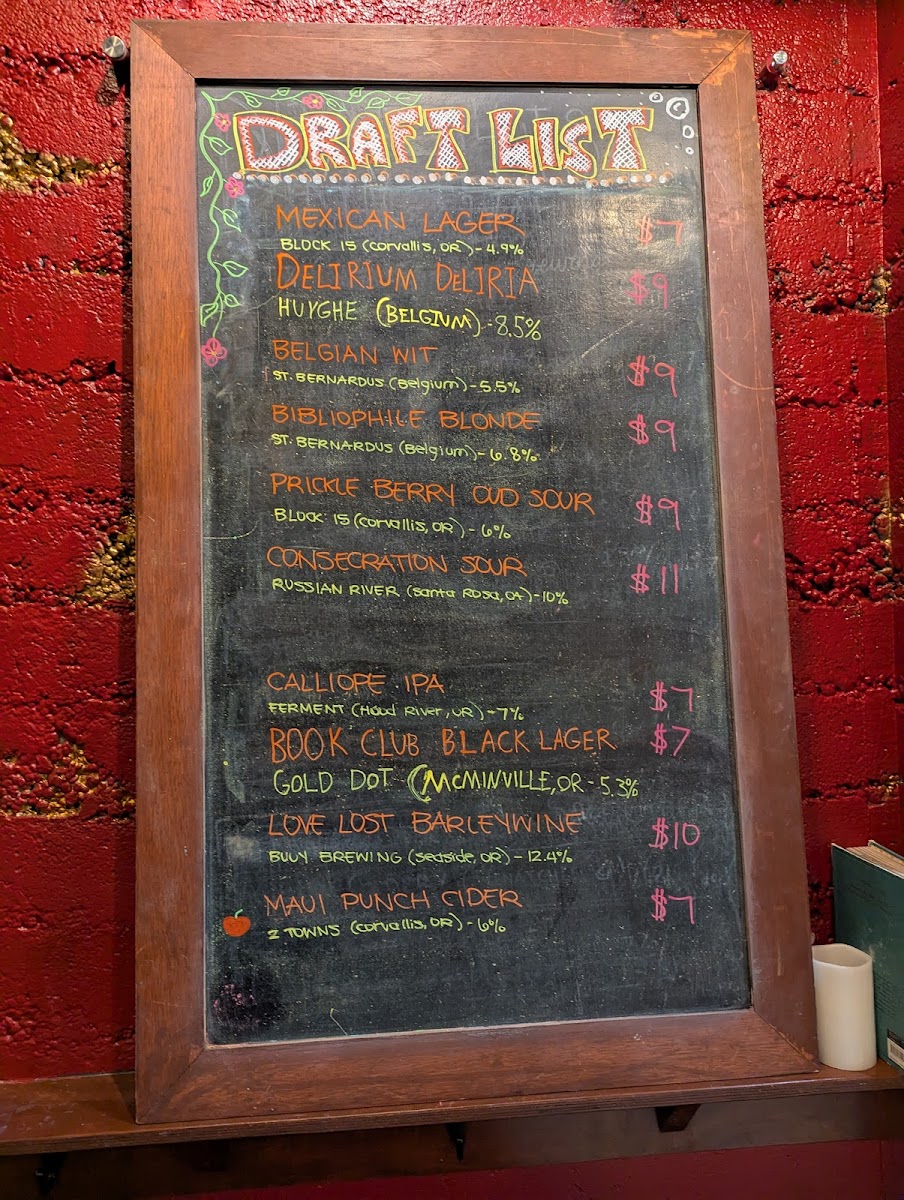 DRAFT LIST
MEXICAN LAGER $7
BLOCK 15 (corvallis, OR) - 4.9%
DELIRIUM DELIRIA $9
HUYGHE (BELGIUM) - 8.5%
BELGIAN WIT $9
ST. BERNARDUS (Belgium) - 5.5%
BIBLIOPHILE BLONDE $9
ST. BERNARDUS (Belgium) - 6.8%
PRICKLE BERRY OUD SOUR $9
BLOCK 15 (corvallis, OR) - 6%
CONSECRATION SOUR $11
RUSSIAN RIVER (santa Rosa, CA) - 10%
CALLIOPE IPA $7
FERMENT (Hood River, OR) - 7%
BOOK CLUB BLACK LAGER $7
GOLD DOT (McMINVILLE, OR - 5.3%
LOVE LOST BARLEYWINE $10
BUOY BREWING (seaside, OR) - 12.4%
MAUI PUNCH CIDER $7
2 TOWNS (corvallis, OR) - 6%